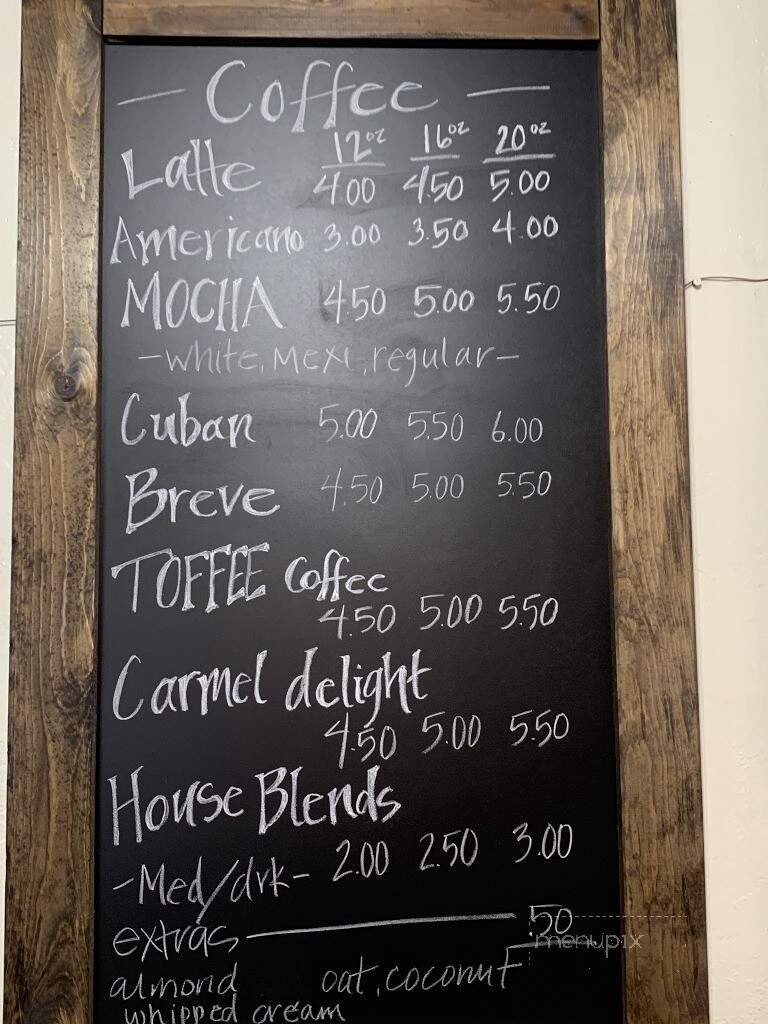 — Coffee —
12oz 16oz 20oz
Latte 4.00 4.50 5.00
Americano 3.00 3.50 4.00
MOCHA 4.50 5.00 5.50
-white, Mexi, regular-
Cuban 5.00 5.50 6.00
Breve 4.50 5.00 5.50
TOFFEE Coffee
4.50 5.00 5.50
Carmel delight
4.50 5.00 5.50
House Blends
-Med/drk- 2.00 2.50 3.00
extras — .50
menupix
almond oat, coconut
whipped cream